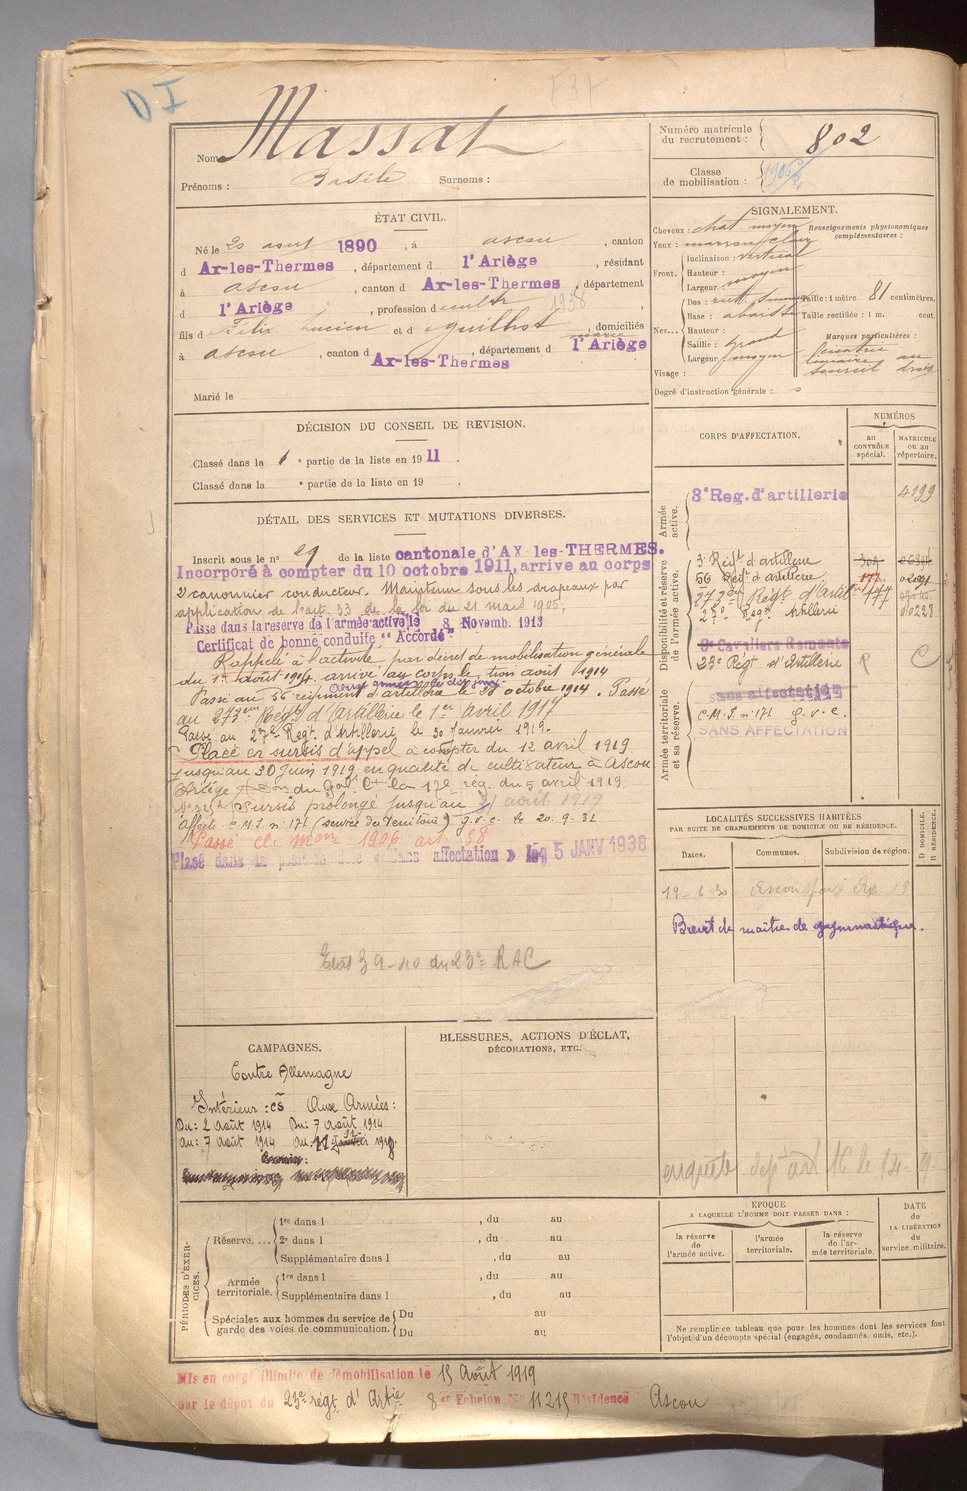 Nom Massat
Prénoms : Basile Surnoms :
Numéro matricule du recrutement : 802
Classe de mobilisation :
ÉTAT CIVIL.
Né le 20 aout 1890, à ascou, canton
d Ax-les-Thermes, département d l'Ariège, résidant
à ascou, canton d Ax-les-Thermes, département
d l'Ariège, profession de cultr
fils de Félix Lucien et d eguilhot marie, domiciliés
à ascou, canton d Ax-les-Thermes, département d l'Ariège
Marié le
SIGNALEMENT.
Cheveux : chat. moyen
Yeux : marron clair
Front. Inclinaison : vertical
Hauteur :
Largeur : moyen
Nez... Dos : rect.
Base : abaissé
Hauteur :
Saillie : grand
Largeur : moyen
Visage :
Renseignements physionomiques complémentaires :
Taille : 1 mètre 81 centimètres.
Taille rectifiée : 1 m. cent.
Marques particulières :
Cicatrice
linéaire au
sourcil droit
Degré d'instruction générale :
DÉCISION DU CONSEIL DE REVISION.
Classé dans la 1 e partie de la liste en 1911.
Classé dans la e partie de la liste en 19 .
DÉTAIL DES SERVICES ET MUTATIONS DIVERSES.
Inscrit sous le n° 29 de la liste cantonale d'AX-les-THERMES.
Incorporé à compter du 10 octobre 1911, arrive au corps
2e canonnier conducteur. Maintenu sous les drapeaux par
application de l'art. 33 de la loi du 21 mars 1905,
Passé dans la réserve de l'armée active le 8 Novemb. 1913
Certificat de bonne conduite "Accordé"
Rappelé à l'activité par décret de mobilisation générale
du 1er Août 1914. arrivé au corps le trois août 1914
Passé au 56e régiment d'artillerie le 28 octobre 1914. Passé
au 273eme Régt d'Artillerie le 1er avril 1917
Passé au 27e Régt d'Artillerie le 30 Janvier 1919.
Placé en sursis d'appel à compter du 12 avril 1919
jusqu'au 30 Juin 1919 en qualité de cultivateur à Ascou
Ariège du Gal Ct la 17e rég. du 5 avril 1919
Sursis prolongé jusqu'au 31 août 1919
Affecté C.M.I. n° 171 (service du Territoire) g.v.c. le 20.9.31
Passé cl. mon 1906 art. 58
Plasé dans la position dite « Sans affectation » le 15 JANV 1938
Etat 39-40 du 23e RAC
CORPS D'AFFECTATION.
NUMÉROS
au CONTRÔLE spécial.
MATRICULE ou au répertoire.
Armée active.
3e Reg. d'artillerie 4199
Disponibilité et réserve de l'armée active.
3e Régt d'artillerie 309
56 Régt d'artillerie 177
273em Régt d'Artie 177
27e Regt Artillerie 010228
Cavaliers Remonte
23e Régt d'Artillerie R C
Armée territoriale et sa réserve.
sans affectation
C.M.I. n° 171 g.v.c.
SANS AFFECTATION
LOCALITÉS SUCCESSIVES HABITÉES
PAR SUITE DE CHANGEMENTS DE DOMICILE OU DE RÉSIDENCE.
Dates. Communes. Subdivision de région. D DOMICILE. R RÉSIDENCE.
19-6-30 Ascou
Brevet de maître de gymnastique.
CAMPAGNES.
Contre Allemagne
Intérieur : CS Aux Armées :
Du : 2 août 1914 Du : 7 août 1914
au : 7 août 1914
BLESSURES, ACTIONS D'ÉCLAT,
DÉCORATIONS, ETC.
enquête art 16 le 14. 9
PÉRIODES D'EXERCICES.
Réserve.... 1re dans l , du au
2e dans l , du au
Supplémentaire dans l , du au
Armée territoriale. 1re dans l , du au
Supplémentaire dans l , du au
Spéciales aux hommes du service de garde des voies de communication. Du au
Du au
ÉPOQUE
A LAQUELLE L'HOMME DOIT PASSER DANS :
la réserve de l'armée active.
l'armée territoriale.
la réserve de l'armée territoriale.
DATE de LA LIBÉRATION du service militaire.
Ne remplir ce tableau que pour les hommes dont les services font
l'objet d'un décompte spécial (engagés, condamnés, omis, etc.).
Mis en congé illimité de démobilisation le 15 Août 1919
par le dépôt du 23e régt d'Artie 8er Echelon No 11215 Résidence Ascou